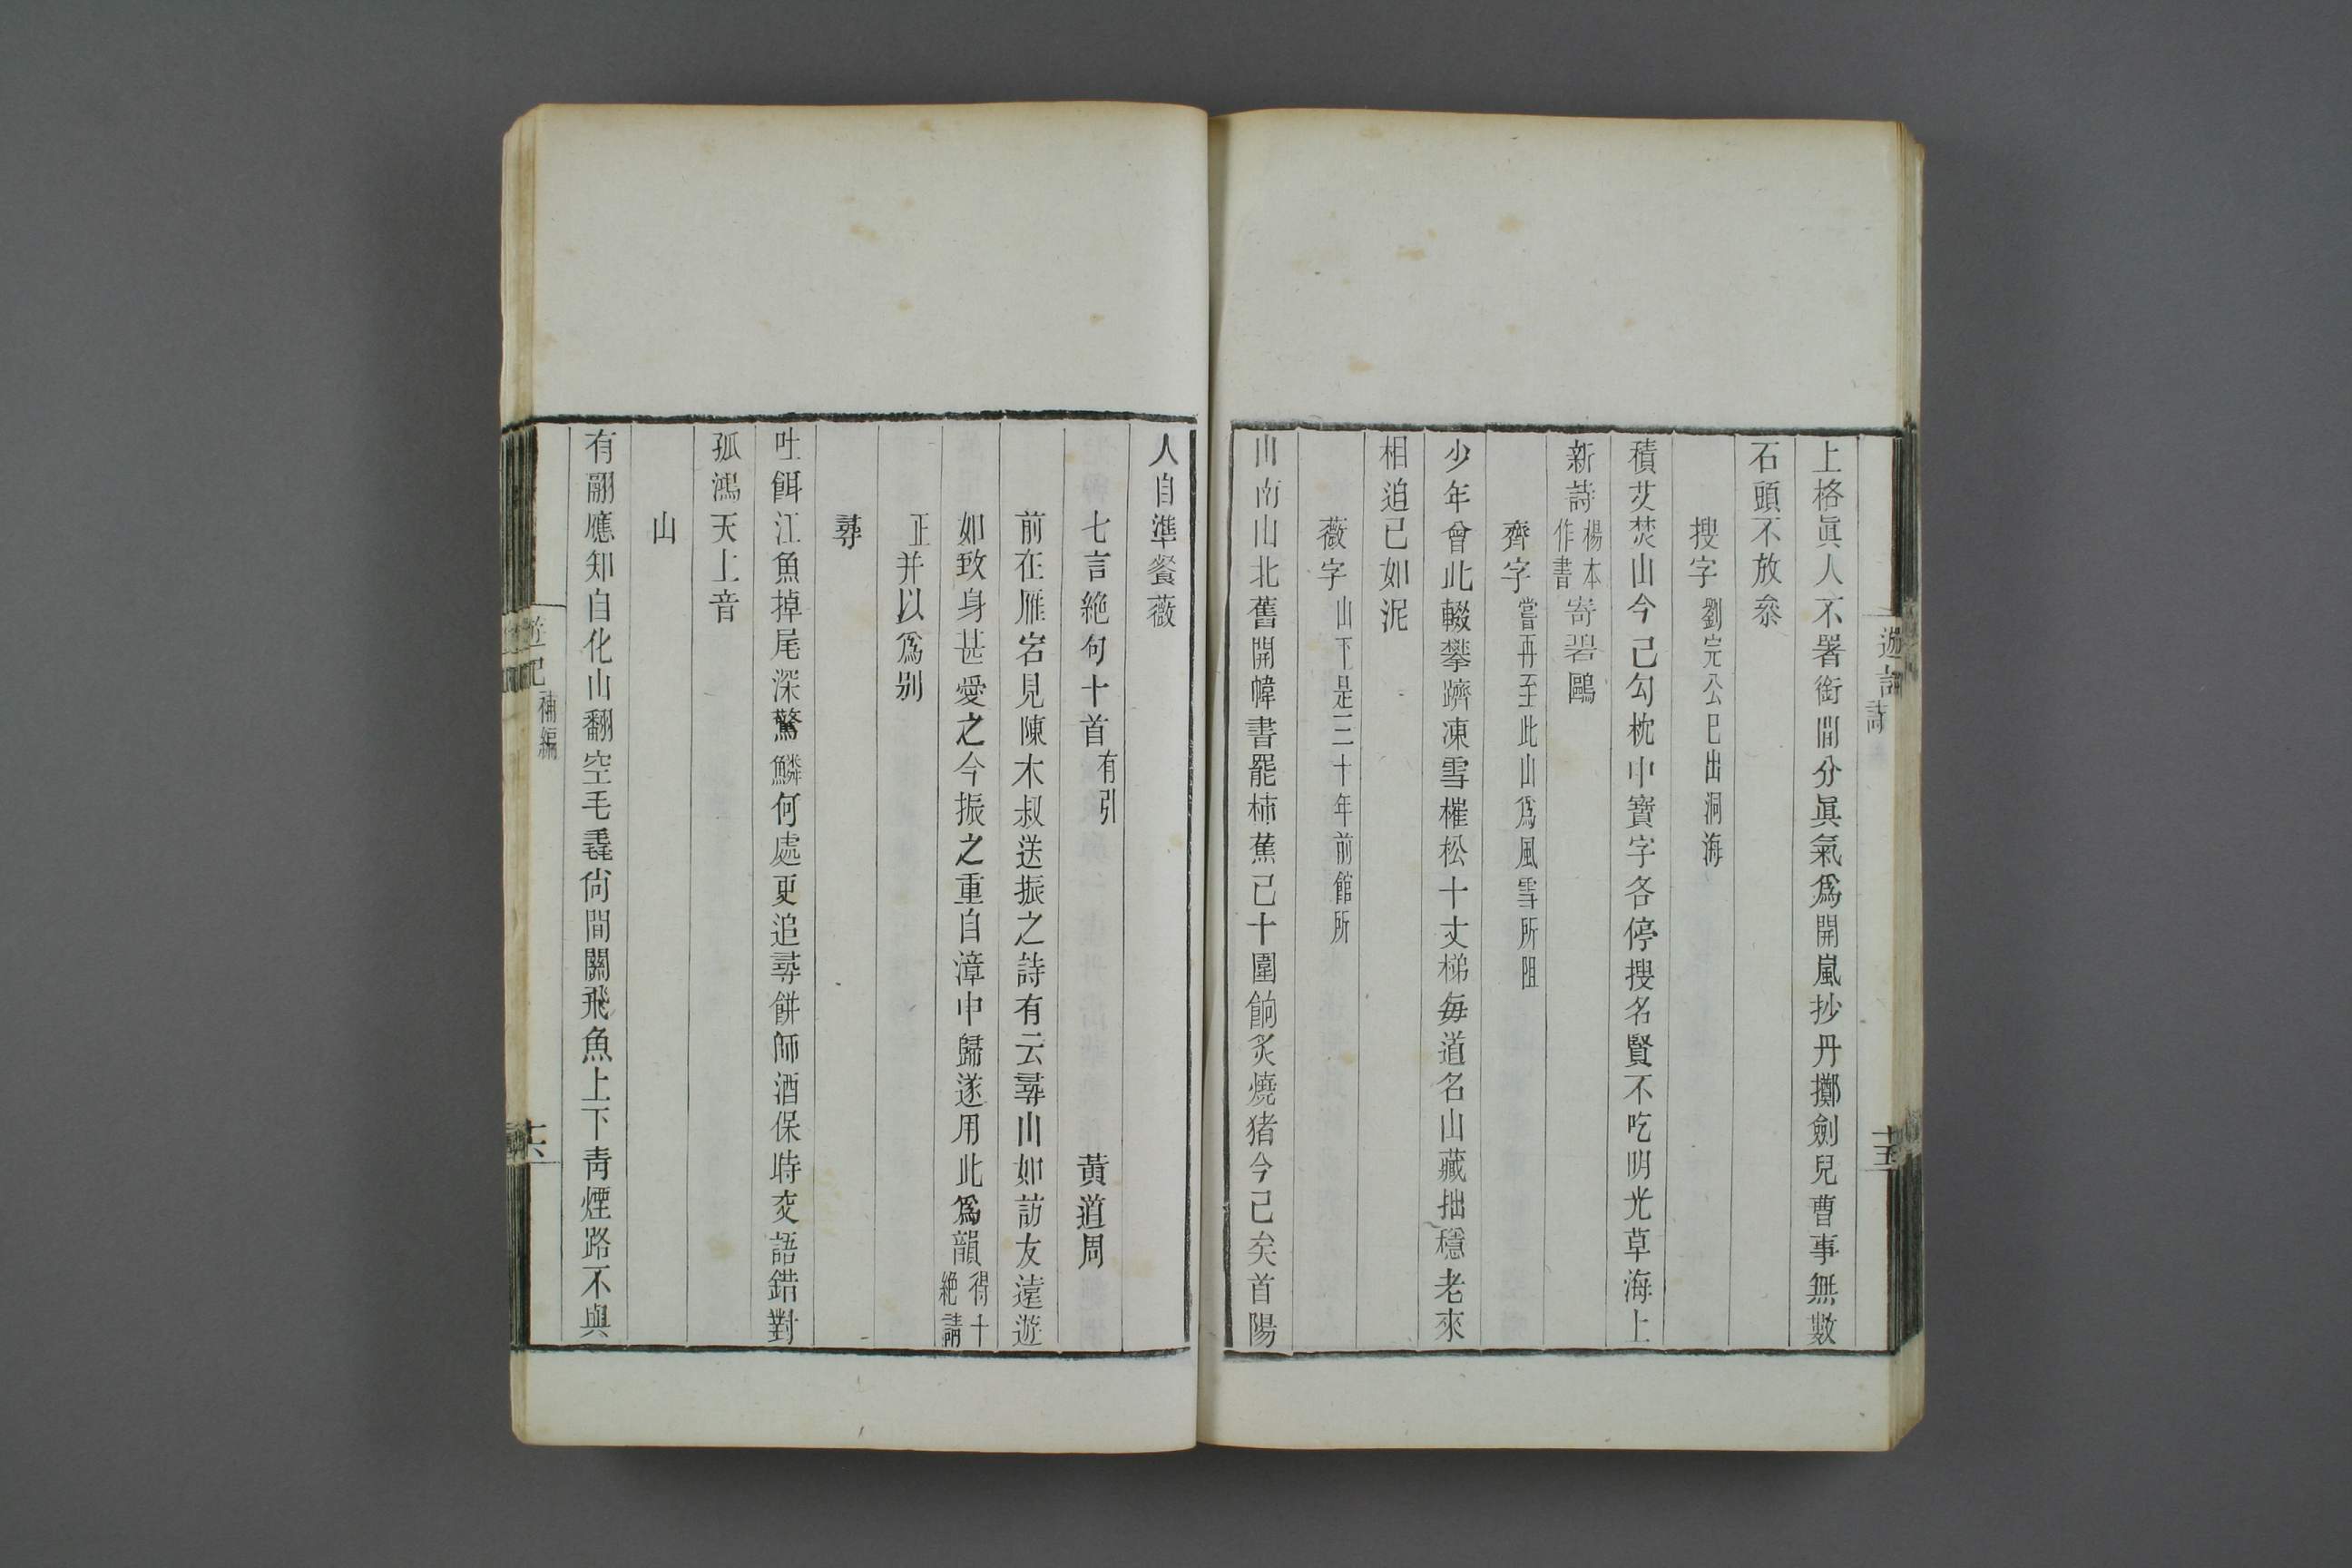 上格眞人不署銜間分眞氣爲開嵐抄丹擲劍兒曹事無數
石頭不放叅
搜字劉完公已出洞海
積艾焚山今已勾枕中寶字各停搜名賢不吃明光草海上
新詩楊本作書寄碧鷗
齊字嘗再至此山爲風雪所阻
少年曾此輟攀躋凍雪榷松十丈梯每道名山藏拙穩老來
相迫已如泥
薇字山下是三十年前館所
川南山北舊開幃書罷柿蕉已十圍餉炙燒猪今已矣首陽
人自準餐薇
七言絶句十首有引 黃道周
前在雁宕見陳木叔送振之詩有云尋山如訪友遠遊
如致身甚愛之今振之重自漳申歸遂用此爲韻得十絶請
正并以爲别
尋
吐餌江魚掉尾深驚鱗何處更追尋餅師酒保時交語錯對
孤鴻天上音
山
有翮應知自化山翻空毛毳尙間關飛魚上下靑煙路不與
遊記 詩
十五
遊記 補編
十六